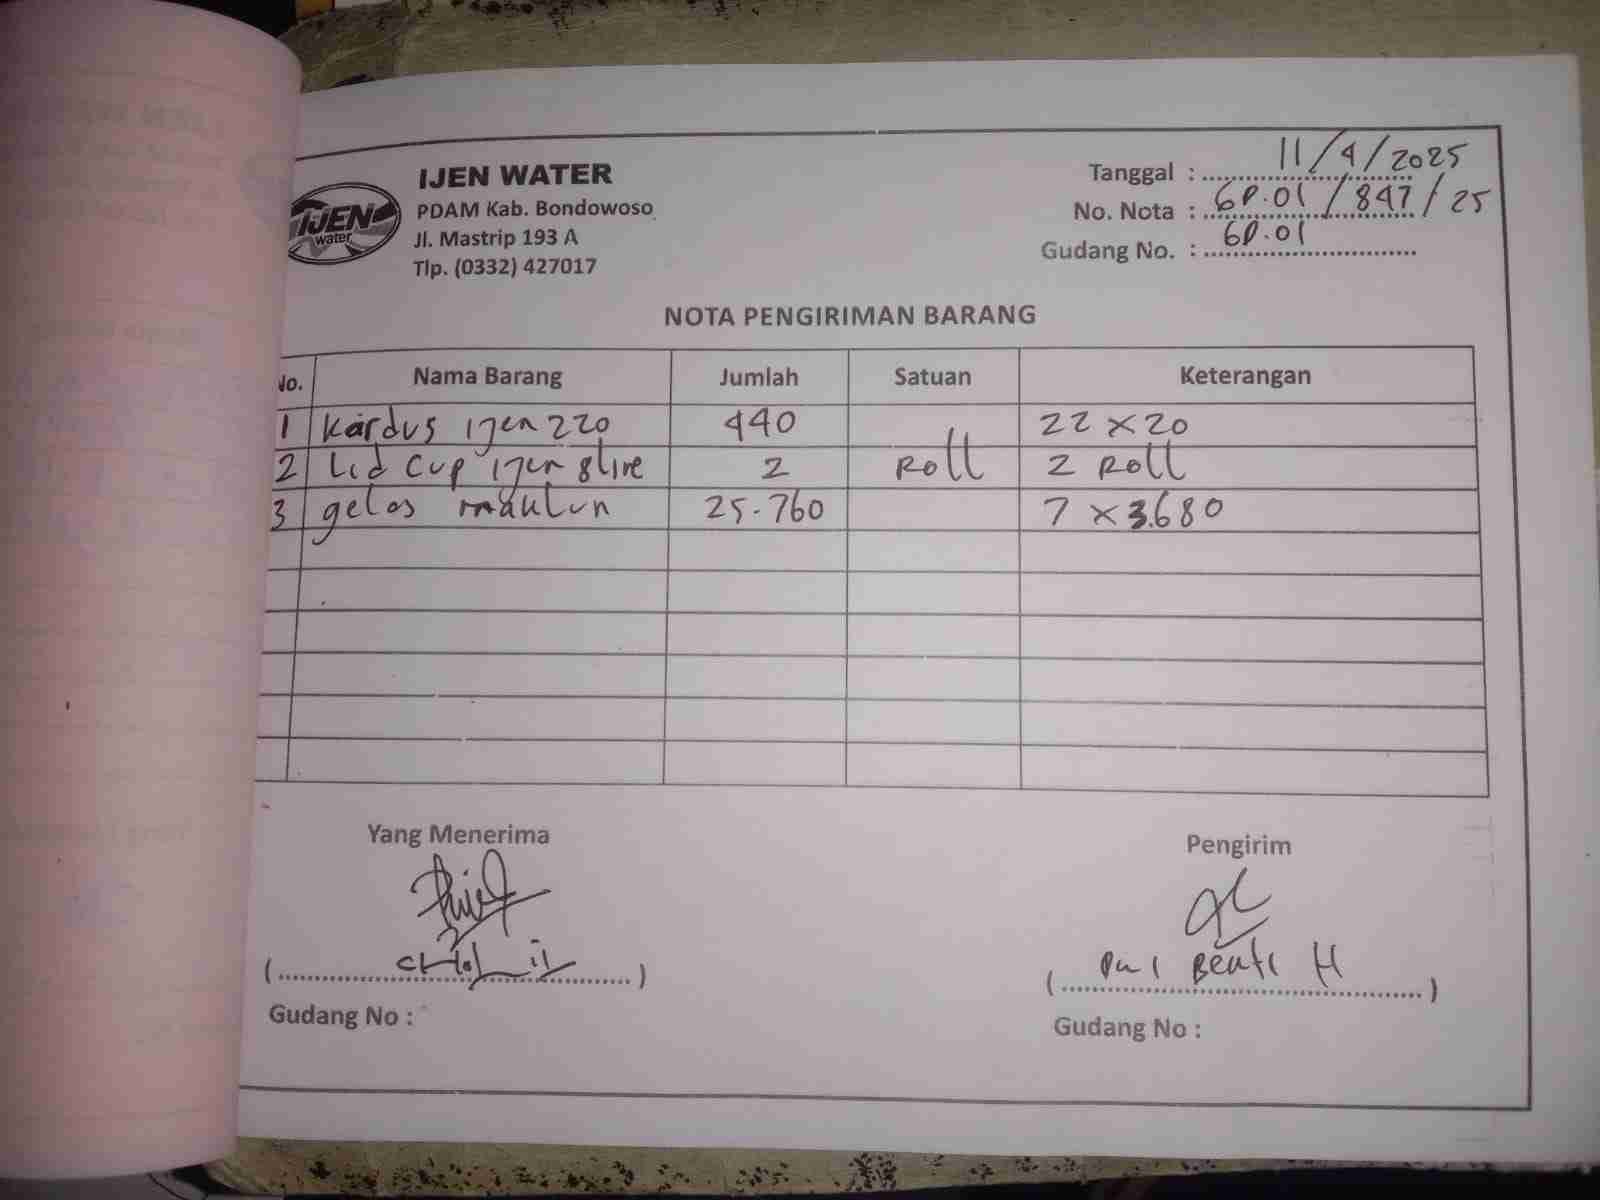 IJEN WATER
PDAM Kab. Bondowoso
Jl. Mastrip 193 A
Tlp. (0332) 427017
IJEN
water
Tanggal : 11/4/2025
No. Nota : GD.01/847/25
Gudang No. : GD.01
NOTA PENGIRIMAN BARANG
No. Nama Barang Jumlah Satuan Keterangan
1 Kardus ijen 220 440 22 x 20
2 Lid cup ijen 8 line 2 Roll 2 Roll
3 gelas maklun 25.760 7 x 3.680
Yang Menerima Pengirim
(..........) (..........)
Gudang No : Gudang No :